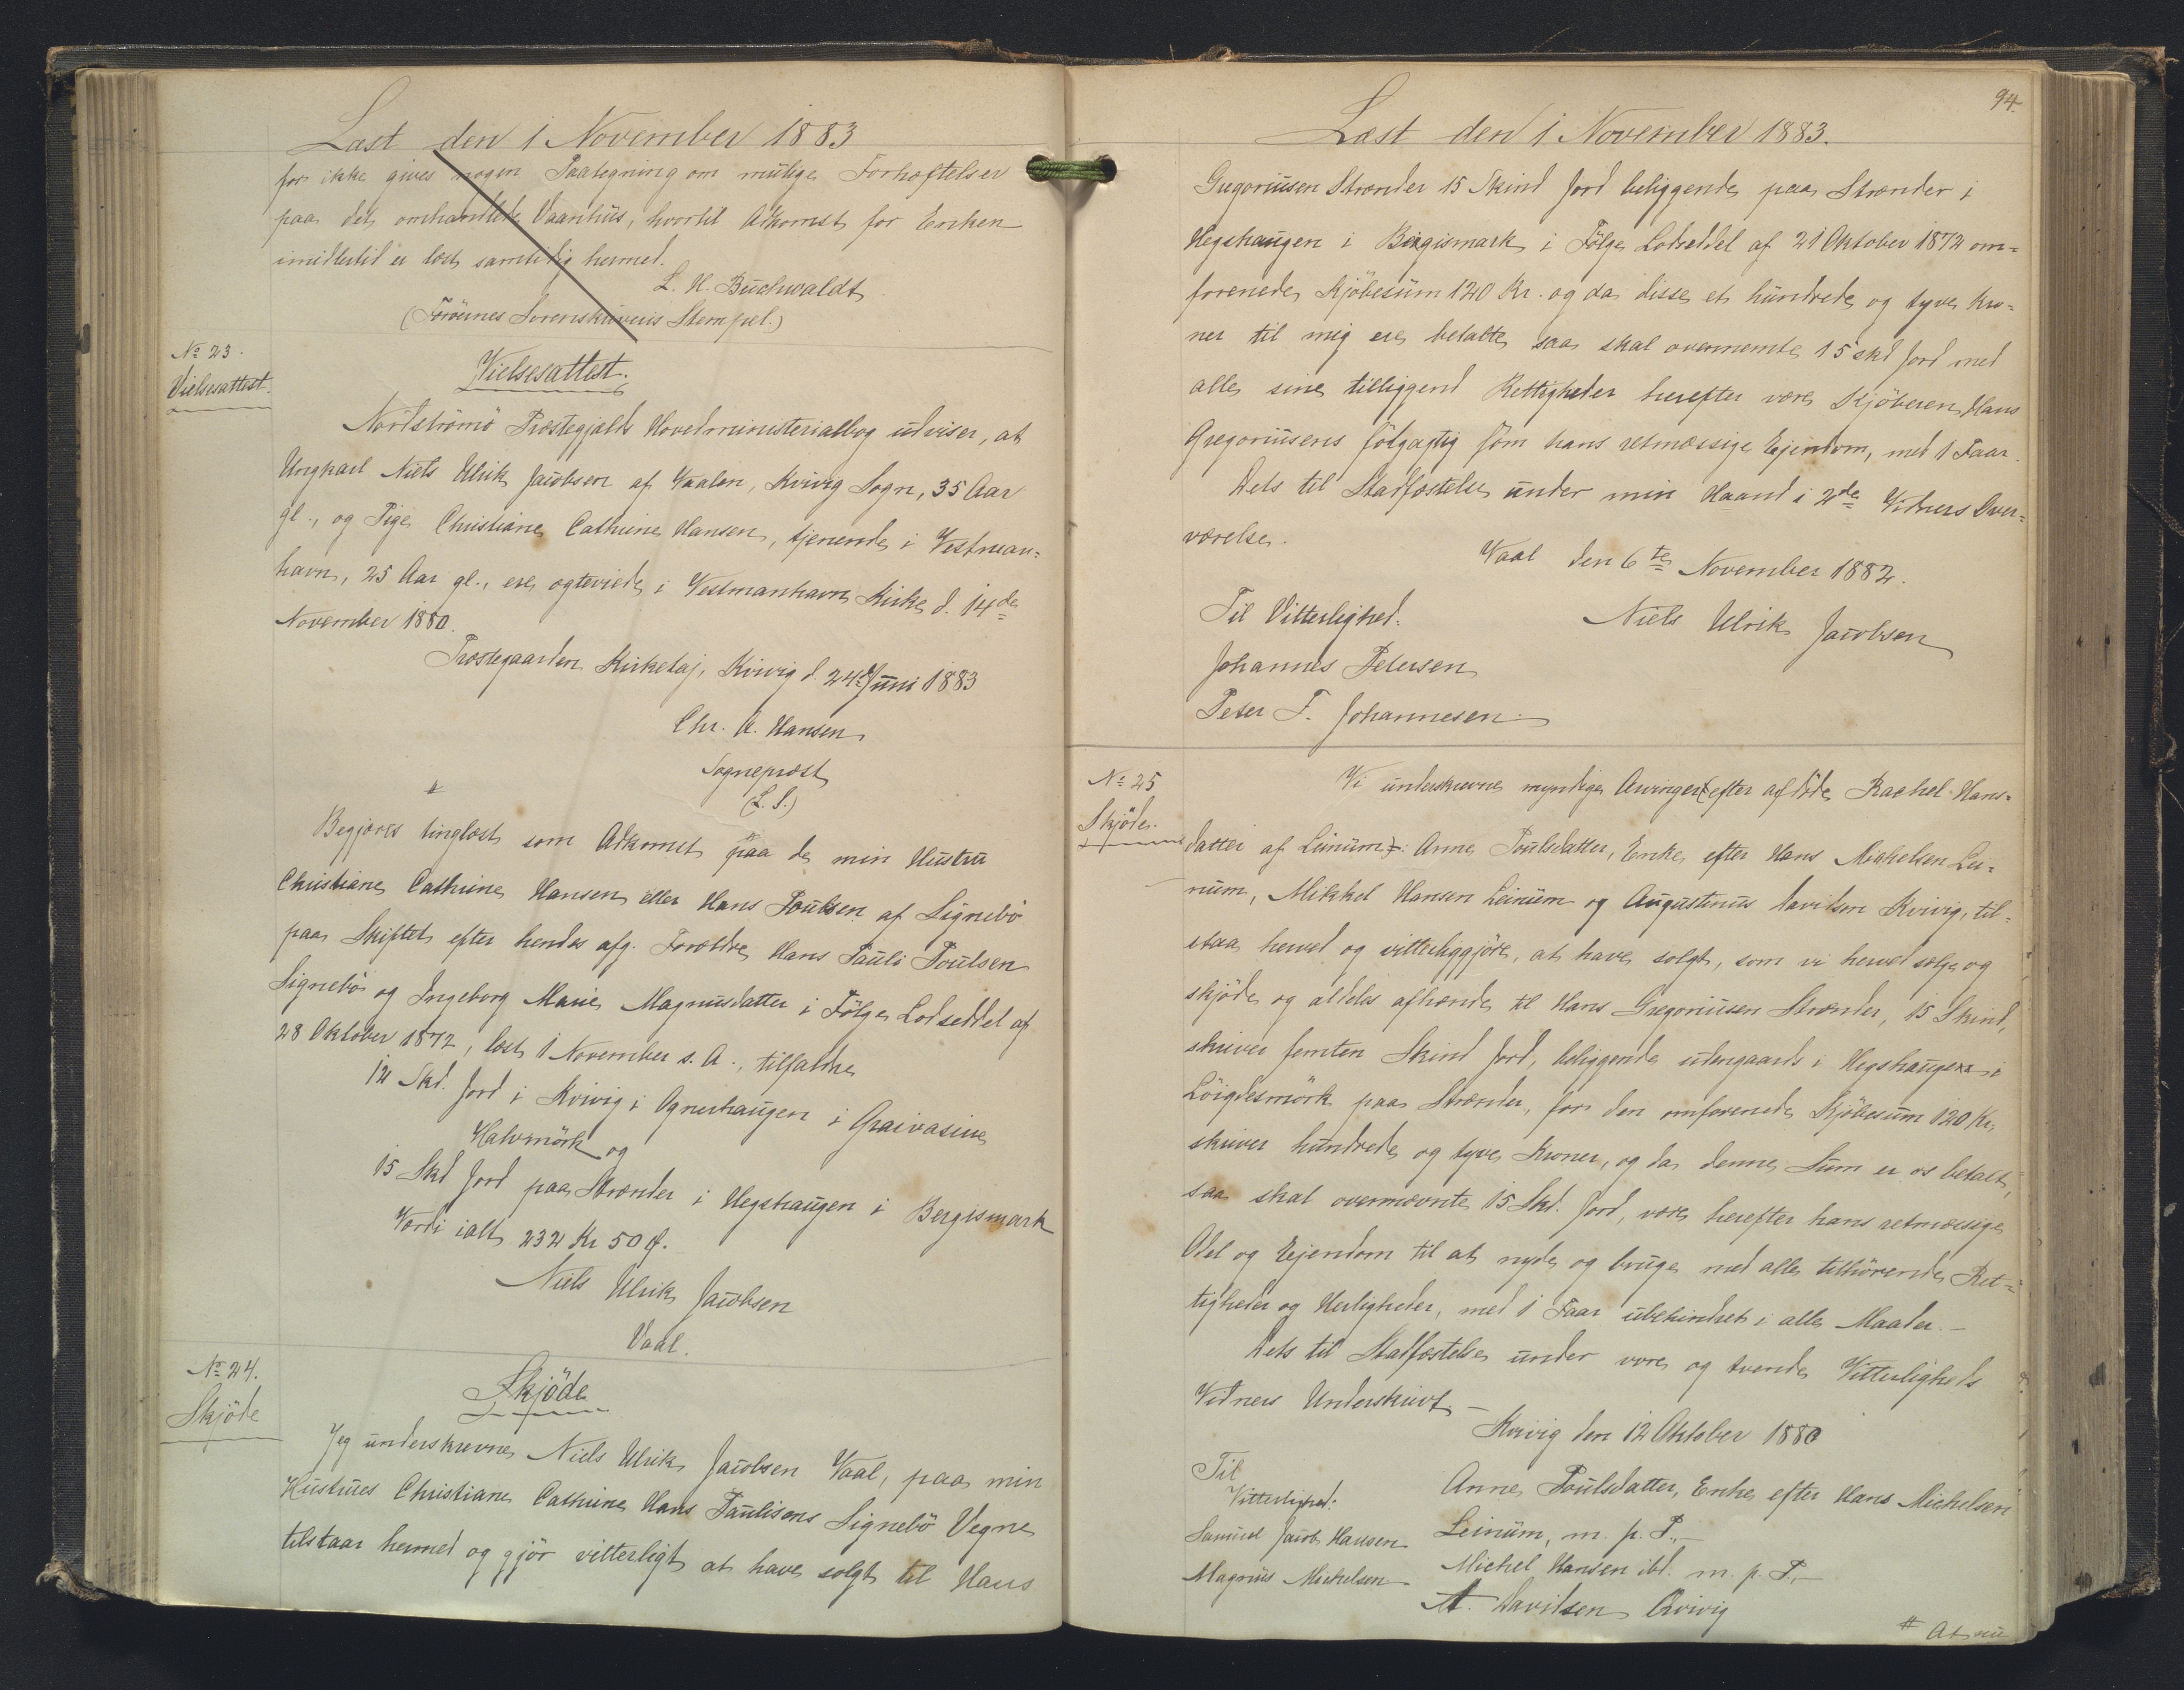 Læst den 1 November 1883
for ikke gives nogen Paategning om mulige Forhæftelser
paa det omhandlede Vaanhus, hvortil Adkomst for Enken
imidlertid er læst samtidig hermed.
L. H. Buchwaldt
(Færøernes Sorenskriveris Stempel.)
No 23.
Vielsesattest.
Vielsesattest.
Nordstrømø Præstegjelds Hovedministerialbog udviser, at
Ungkarl Niels Ulrik Jacobsen af Vaalen, Kvivig Sogn, 35 Aar
gl., og Pige Christiane Cathrine Hansen, tjenende i Vestman-
havn, 25 Aar gl., ere ægteviede i Vestmanhavns Kirke d. 14de
November 1880.
Præstegaarden Kirketaj, Kvivig d. 24de Juni 1883
Chr. A. Hansen
Sognepræst
(L. S.)
#
Begjæres tinglæst som Adkomst paa de min Hustru
Christiane Cathrine Hansen eller Hans Poulsen af Signebø
paa Skiftet efter hendes afg. Forældre Hans Pauli Poulsen
Signebø og Ingeborg Marie Magnusdatter i Følge Lodseddel af
28 Oktober 1872, læst 1 November s. A., tilfaldne
12 Skd. Jord i Kvivig i Ognerhaugen i Graivasine
Halvmörk og
15 Skd Jord paa Strænder i Hegshaugen i Bergismark
Værdi ialt 232 Kr 50 Ø.
Niels Ulrik Jacobsen
Vaal.
No 24.
Skjøde
Skjøde
Jeg underskrevne Niels Ulrik Jacobsen Vaal, paa min
Hustrues Christiane Cathrine Hans Paulisens Signebø Vegne
tilstaar hermed og gjør vitterligt at have solgt til Hans
94.
Læst den 1 November 1883.
Gregoriusen Strænder 15 Skind Jord beliggende paa Strænder i
Hegshaugen i Bergismark i Følge Lodseddel af 21 Oktober 1872 om-
forenede Kjøbesum 120 Kr. og da disse et hundrede og tyve Kro-
ner til mig ere betalte saa skal ovennemte 15 skd Jord med
alle sine tilliggend Rettigheder herefter være Kjøberen Hans
Gregoriusens følgagtig som hans retmæssige Ejendom, med 1 Faar.
Dets til Stadfæstelse under min Haand i 2de Vidners Over-
værelse.
Vaal den 6te November 1882.
Niels Ulrik Jacobsen
Til Vitterlighed.
Johannes Petersen
Peter F. Johannesen
No 25
Skjøde.
Vi underskrevne myndige Arvinger (efter afdøde Rachel Hans-
datter af Leinum): Anne Poulsdatter, Enke efter Hans Mikkelsen Lei-
num, Mikkel Hansen Leinum og Augustinus Davidsen Kvivig, til-
staa herved og vitterliggjøre, at have solgt, som vi herved sælge og
skjøde og aldeles afhænde til Hans Gregoriusen Strænder, 15 Skind,
skriver femten Skind Jord, beliggende udengaards i Hegshaugen i
Löigdesmörk paa Strænder, for den omforenede Kjøbesum 120 Kr,
skriver hundrede og tyve Kroner, og da denne Sum er os betalt,
saa skal ovennævnte 15 Skd. Jord, være herefter hans retmæssige
Odel og Ejendom til at nyde og bruge med alle tilhørende Ret-
tigheder og Herligheder, med 1 Faar ubehindret i alle Maader. -
Dets til Stadfæstelse under vore og tvende Vitterligheds
Vidners Underskrivt. -
Kvivig den 12 Oktober 1880
Til
Vitterlighed.
Samuel Jacob Hansen
Magnus Michelsen
Anne Poulsdatter, Enke efter Hans Michelsen
Leinum, m. p. P. -
Michel Hansen ibd. m. p. P. -
A. Davidsen Qvivig
# At nu